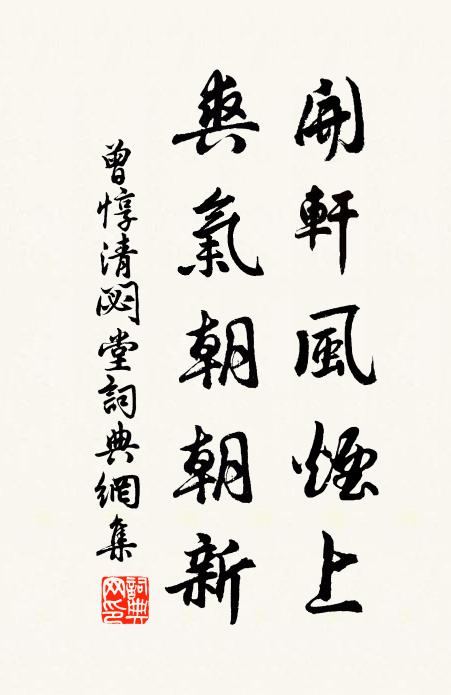 開軒風煙上
爽氣朝朝新
曾惇清閟堂詞典網集
詞典網印